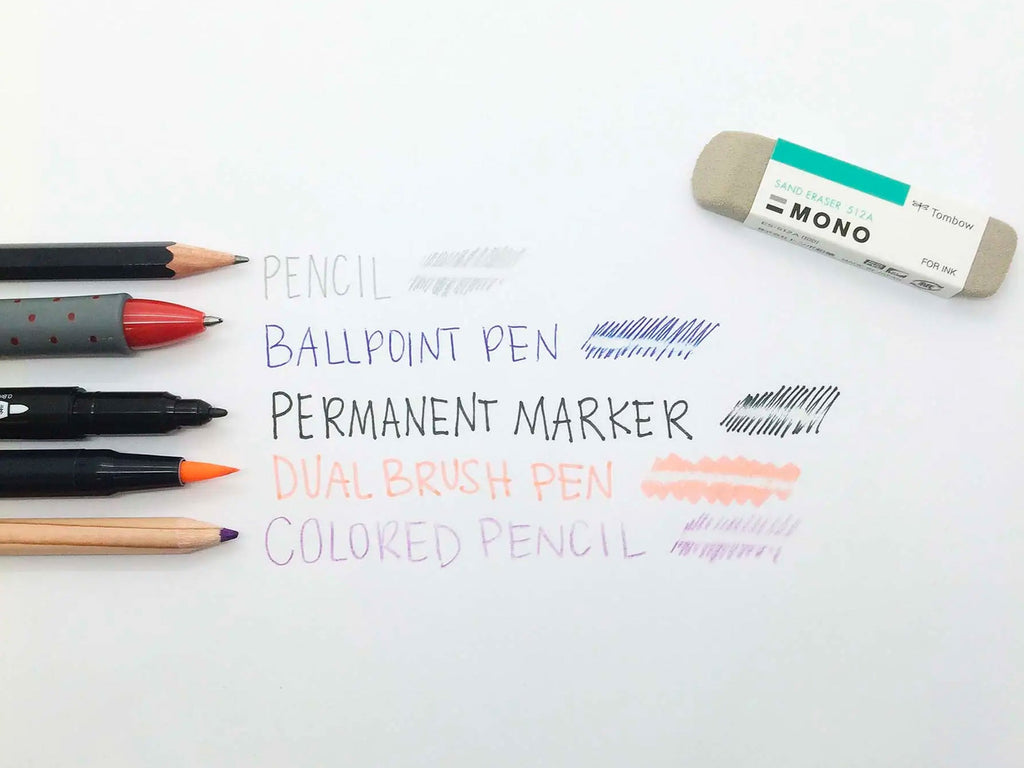 PENCIL
BALLPOINT PEN
PERMANENT MARKER
DUAL BRUSH PEN
COLORED PENCIL
SAND ERASER 512A
MONO
Tombow
FOR INK